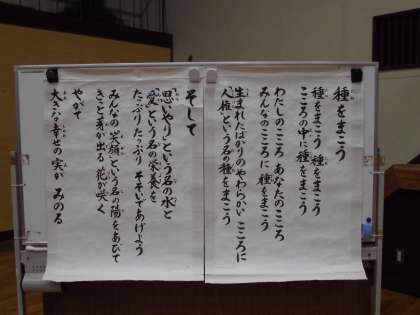 種をまこう
種をまこう 種をまこう
こころの中に 種をまこう
わたしのこころ あなたのこころ
みんなのこころに 種をまこう
生まれたばかりの やわらかい こころに
“人権”という名の種をまこう
そして
“思いやり”という名の水と
“愛”という名の栄養を
たっぷり たっぷり そそいであげよう
みんなの“笑顔”という名の陽をあびて
きっと芽が出る 花が咲く
やがて
大きな幸せの実が みのる